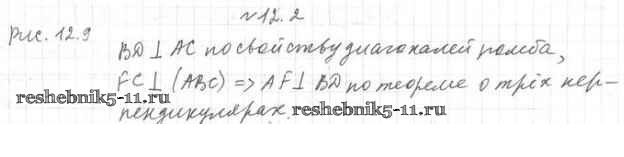 №12.2
Рис. 12.9
BD ⊥ AC по свойству диагоналей ромба,
FC ⊥ (ABC) => AF ⊥ BD по теореме о трёх пер-
reshebnik5-11.ru reshebnik5-11.ru
пендикулярах.